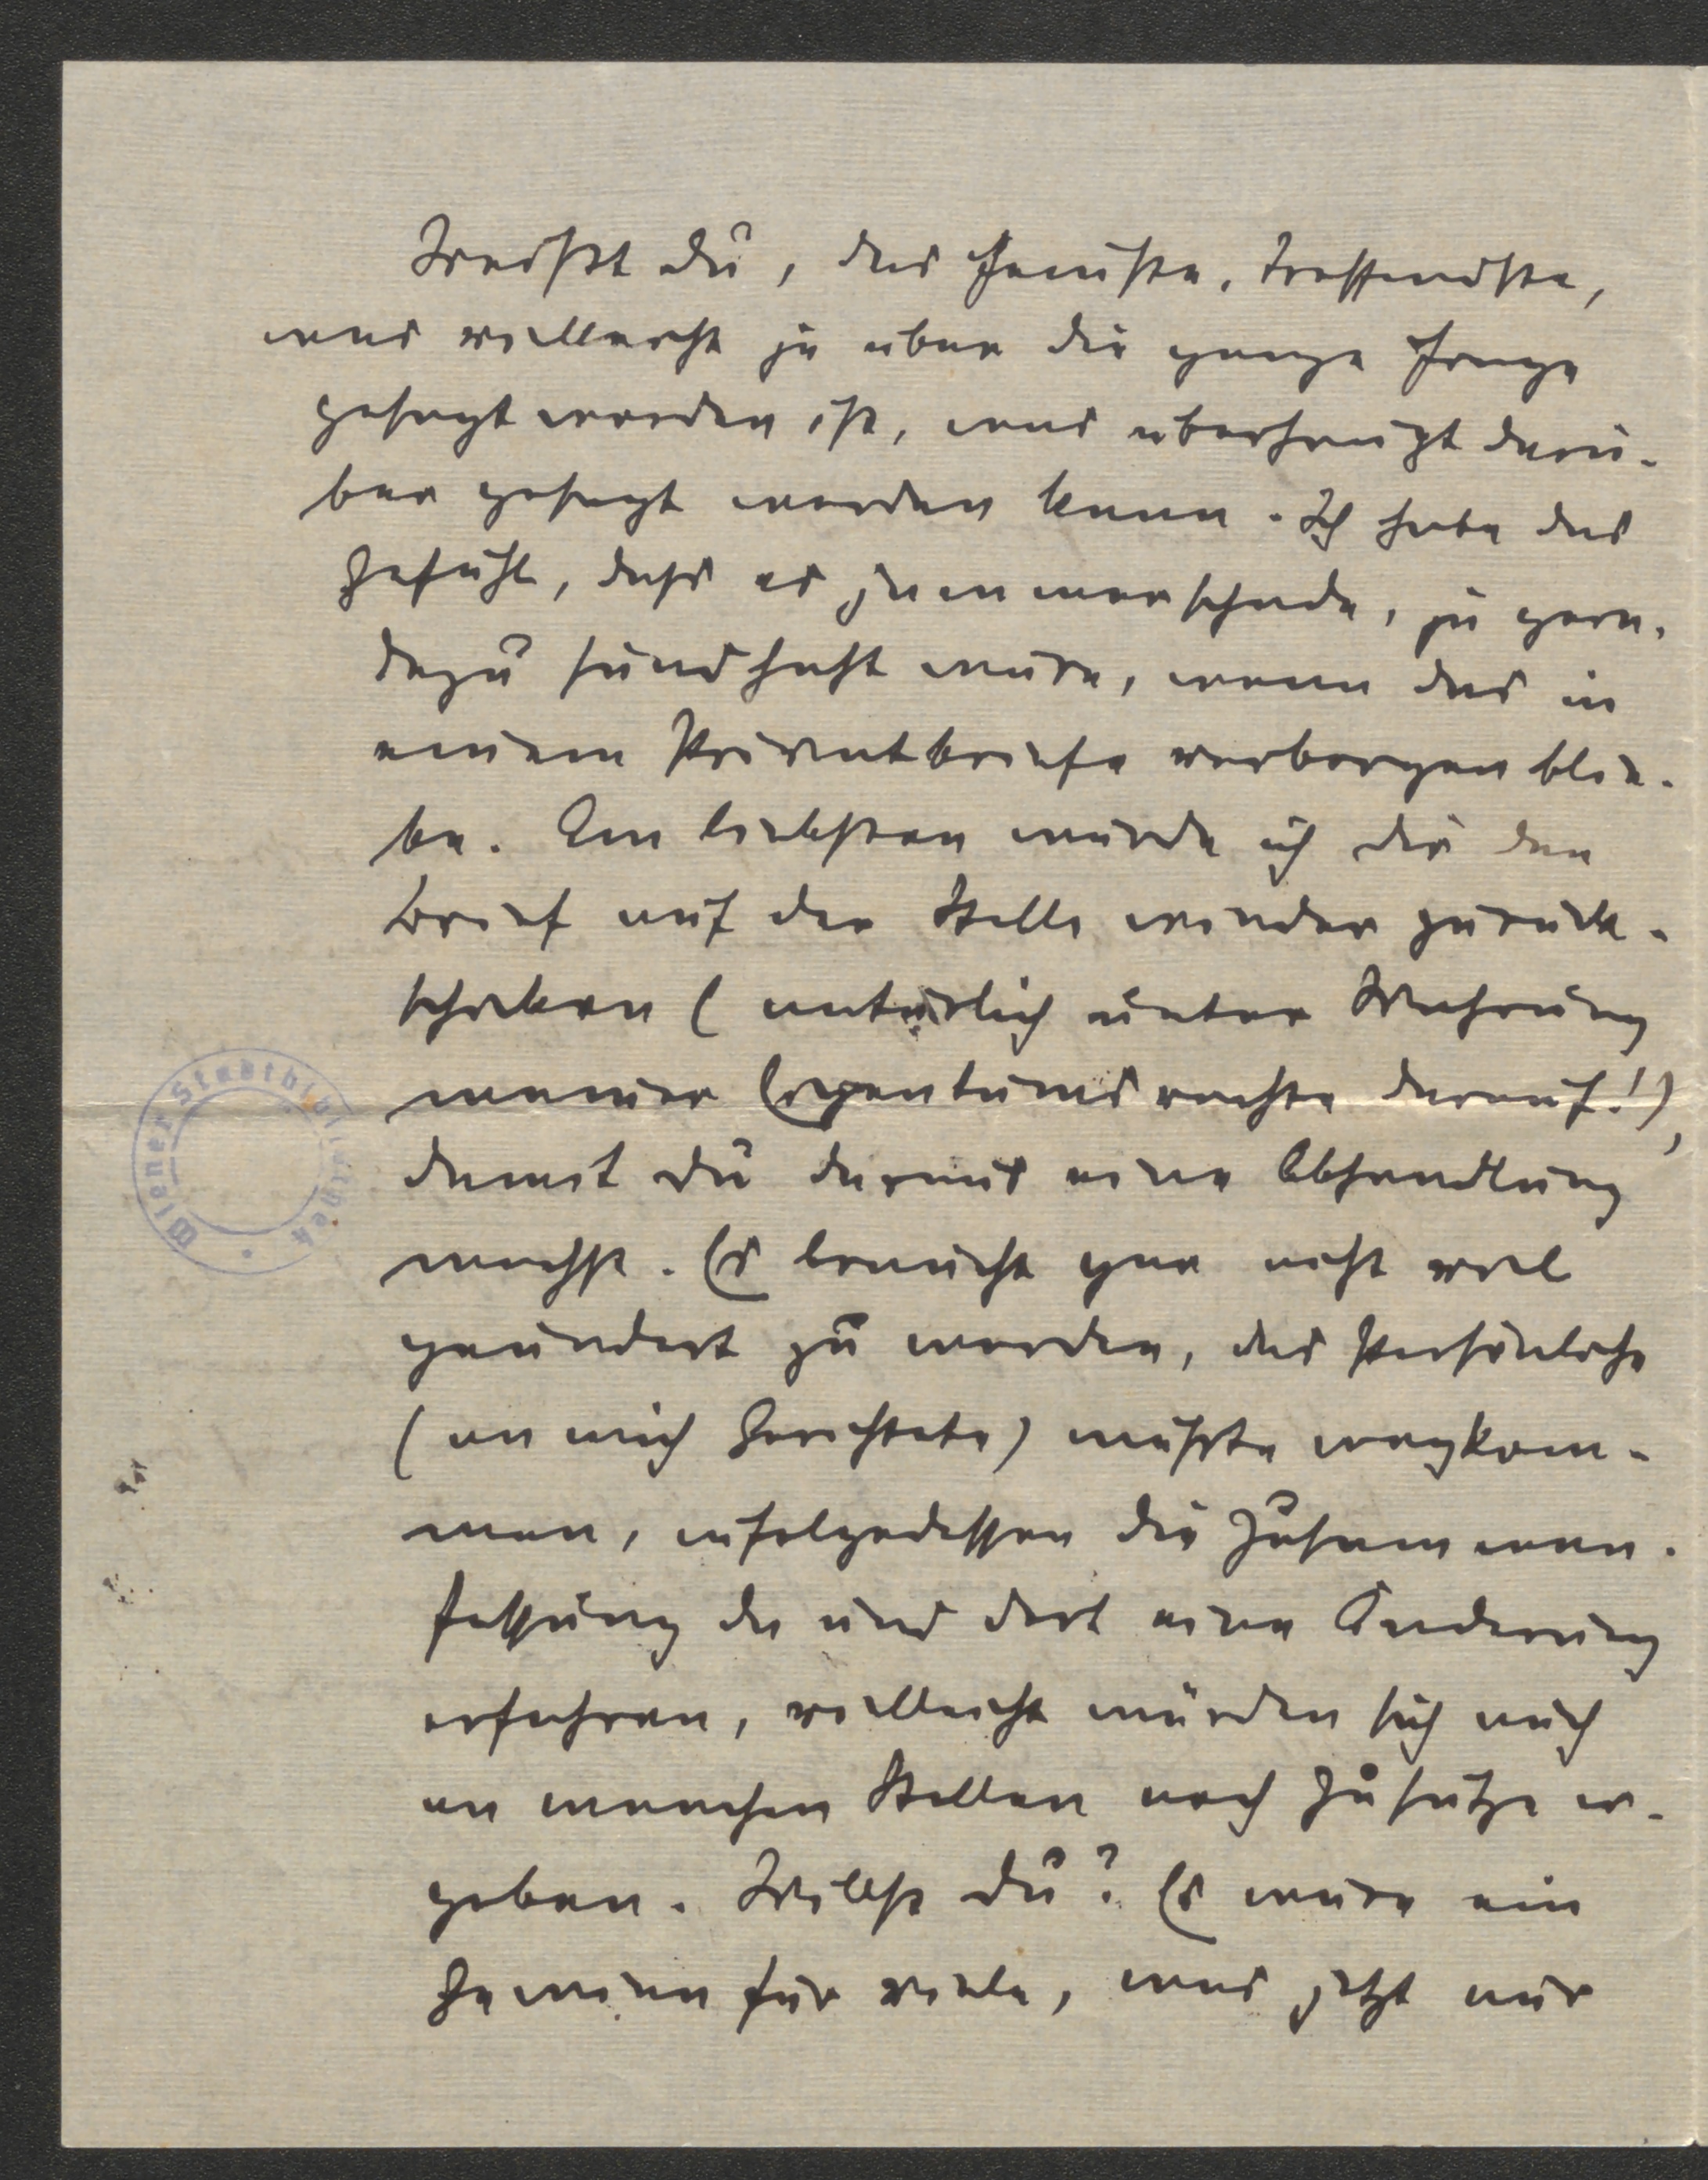 Weißt Du, das Feinste, Treffendste,
was vielleicht je über die ganze Frage
gesagt worden ist, was überhaupt darü-
ber gesagt werden kann. Ich habe das
Gefühl, dass es jammerschade, ja gera-
dezu sündhaft wäre, wenn das in
einem Privatbriefe verborgen blie-
be. Am liebsten würde ich Dir den
Brief auf der Stelle wieder zurück-
schicken (natürlich unter Wahrung
meiner Eigentumsrechte darauf!),
damit Du daraus eine Abhandlung
machst. Es braucht gar nicht viel
geändert zu werden, das Persönliche
(an mich Gerichtete) müßte wegkom-
men, infolgedessen die Zusammen-
fassung da und dort eine Änderung
erfahren, vielleicht würden sich auch
an manchen Stellen noch Zusätze er-
geben. Willst Du? Es wäre ein
Gewinn für viele, was jetzt nur
Wiener Stadtbibliothek